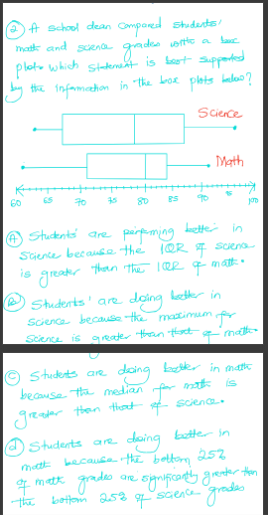 ② A school dean compared students'
math and science grades with a box
plot. which statement is best supported
by the information in the box plots below?
Science
Math
60 65 70 75 80 85 90 95 100
Ⓐ Students are performing better in
science because the IQR of science
is greater than the IQR of math.
Ⓑ Students' are doing better in
science because the maximum for
science is greater than that of math.
Ⓒ Students are doing better in math
because the median for math is
greater than that of science.
ⓓ Students are doing better in
math because the bottom 25%
of math grades are significantly greater than
the bottom 25% of science grades